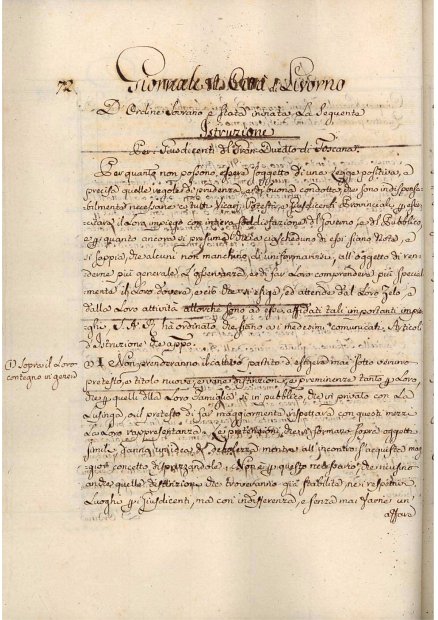 72. Giornale di Città di Livorno
D'Ordine Sovrano è stata inviata la seguente
Istruzione
Per i Giusdicenti del Gran-Ducato di Toscana.
Per quanto non possono essere l'oggetto di una Legge positiva, e
precisa quelle regole di prudenza, e di buona condotta, che sono indispensa-
bilmente necessarie a tutti i Vicari, Potestà, e Giusdicenti Provinciali p. ese-
citare il Loro impiego con intera soddisfazione del Governo, e del Pubblico,
e p. quanto ancora si presuma che a ciascheduno di essi siano note, e
si sappia, che alcuni non manchino di uniformarvisi, all'oggetto di ren-
derne più generale l'osservanza, e di far Loro comprendere più special-
mente il Loro dovere, e ciò che si esige, ed attende dal Loro zelo, e
dalla Loro attività allorchè sono ad essi affidati tali importanti impie-
ghi, S. A. R. ha ordinato, che siano a i medesimi comunicati gli Articoli
d'Istruzione che appo.
1) Sopra il Loro
contegno in genere
1) I. Non prenderanno il cattivo partito d'esigere mai sotto veruno
pretesto, o titolo nuove, e vane distinzioni, e preminenze tanto p. Loro,
che p. quelli della Loro Famiglia, sì in pubblico, che in privato con la
Lusinga, o il pretesto di far maggiormente rispettare con questi mezzi
la Loro rappresentanza: Le pretensioni, che si formano sopra oggetti
simili, danno indizio di debolezza, mentre all'incontro s'acquista mag-
gior concetto di sprezzandole. Non è p. questo necessario, che rinunzino
anche quelle distinzioni che troveranno già stabilite nei respettivi
Luoghi p. i Giusdicenti, ma con indifferenza, e senza mai farne un
affare